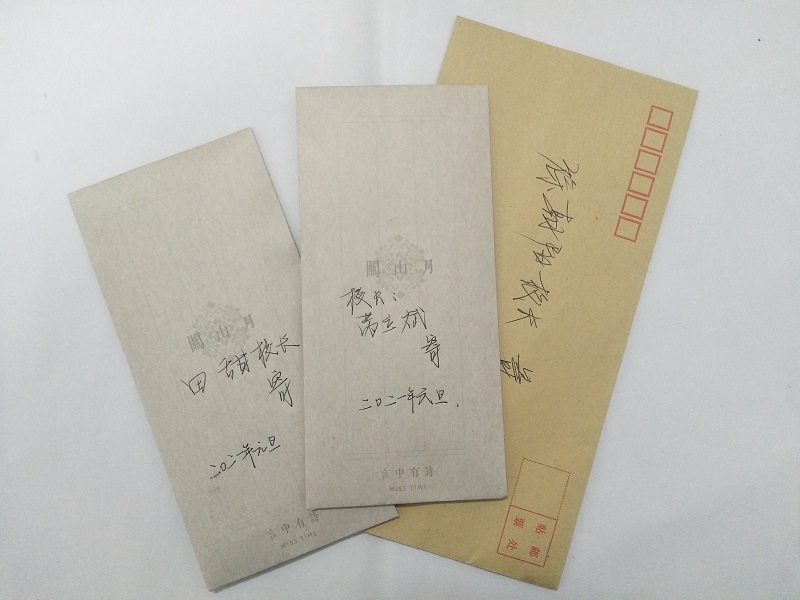 關山月
田甜校长
寄
二〇二一年元旦
言中有詩
MISS TIME
關山月
校长：
立斌
寄
二〇二一年元旦.
言中有詩
MISS TIME
校长 寄
贴邮
票处